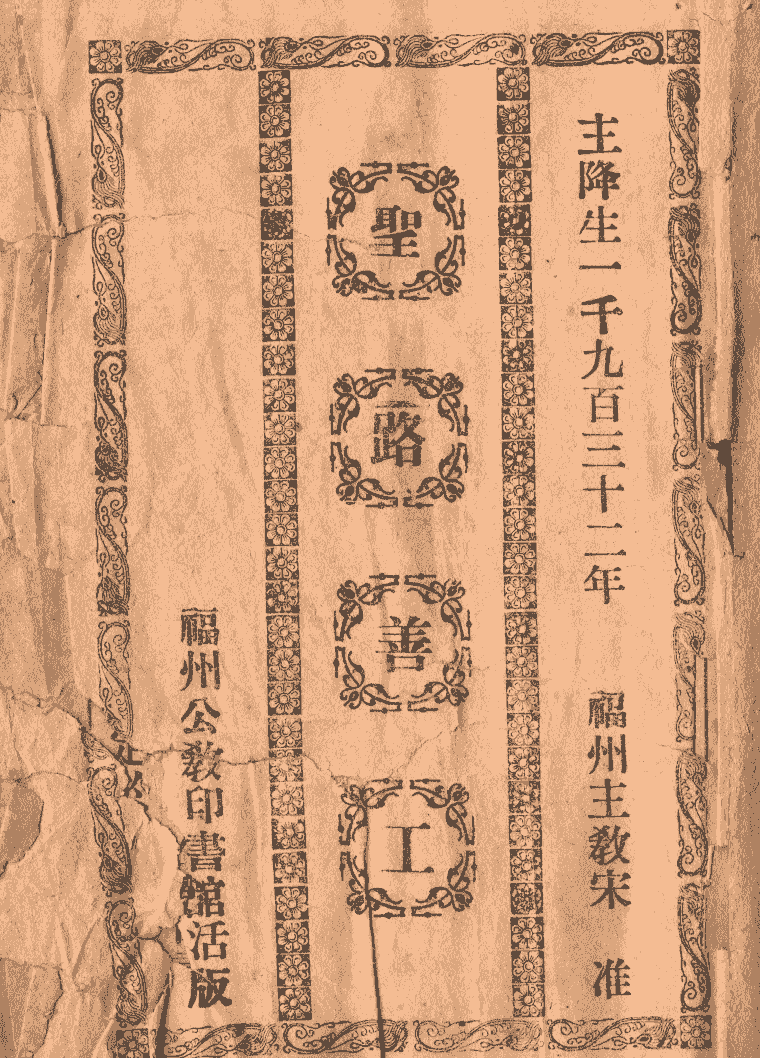 主降生一千九百三十二年 福州主教宋 准
聖路善工
福州公教印書館活版